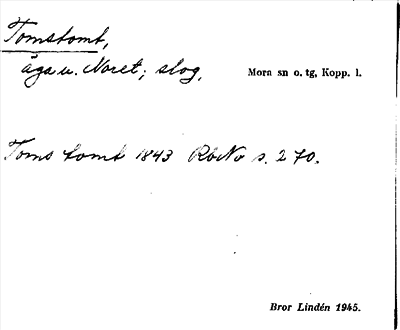 Tomstomt,
äga u. Noret; slog.
Mora sn o. tg, Kopp. l.
Toms tomt 1843 RbNo s. 270.
Bror Lindén 1945.